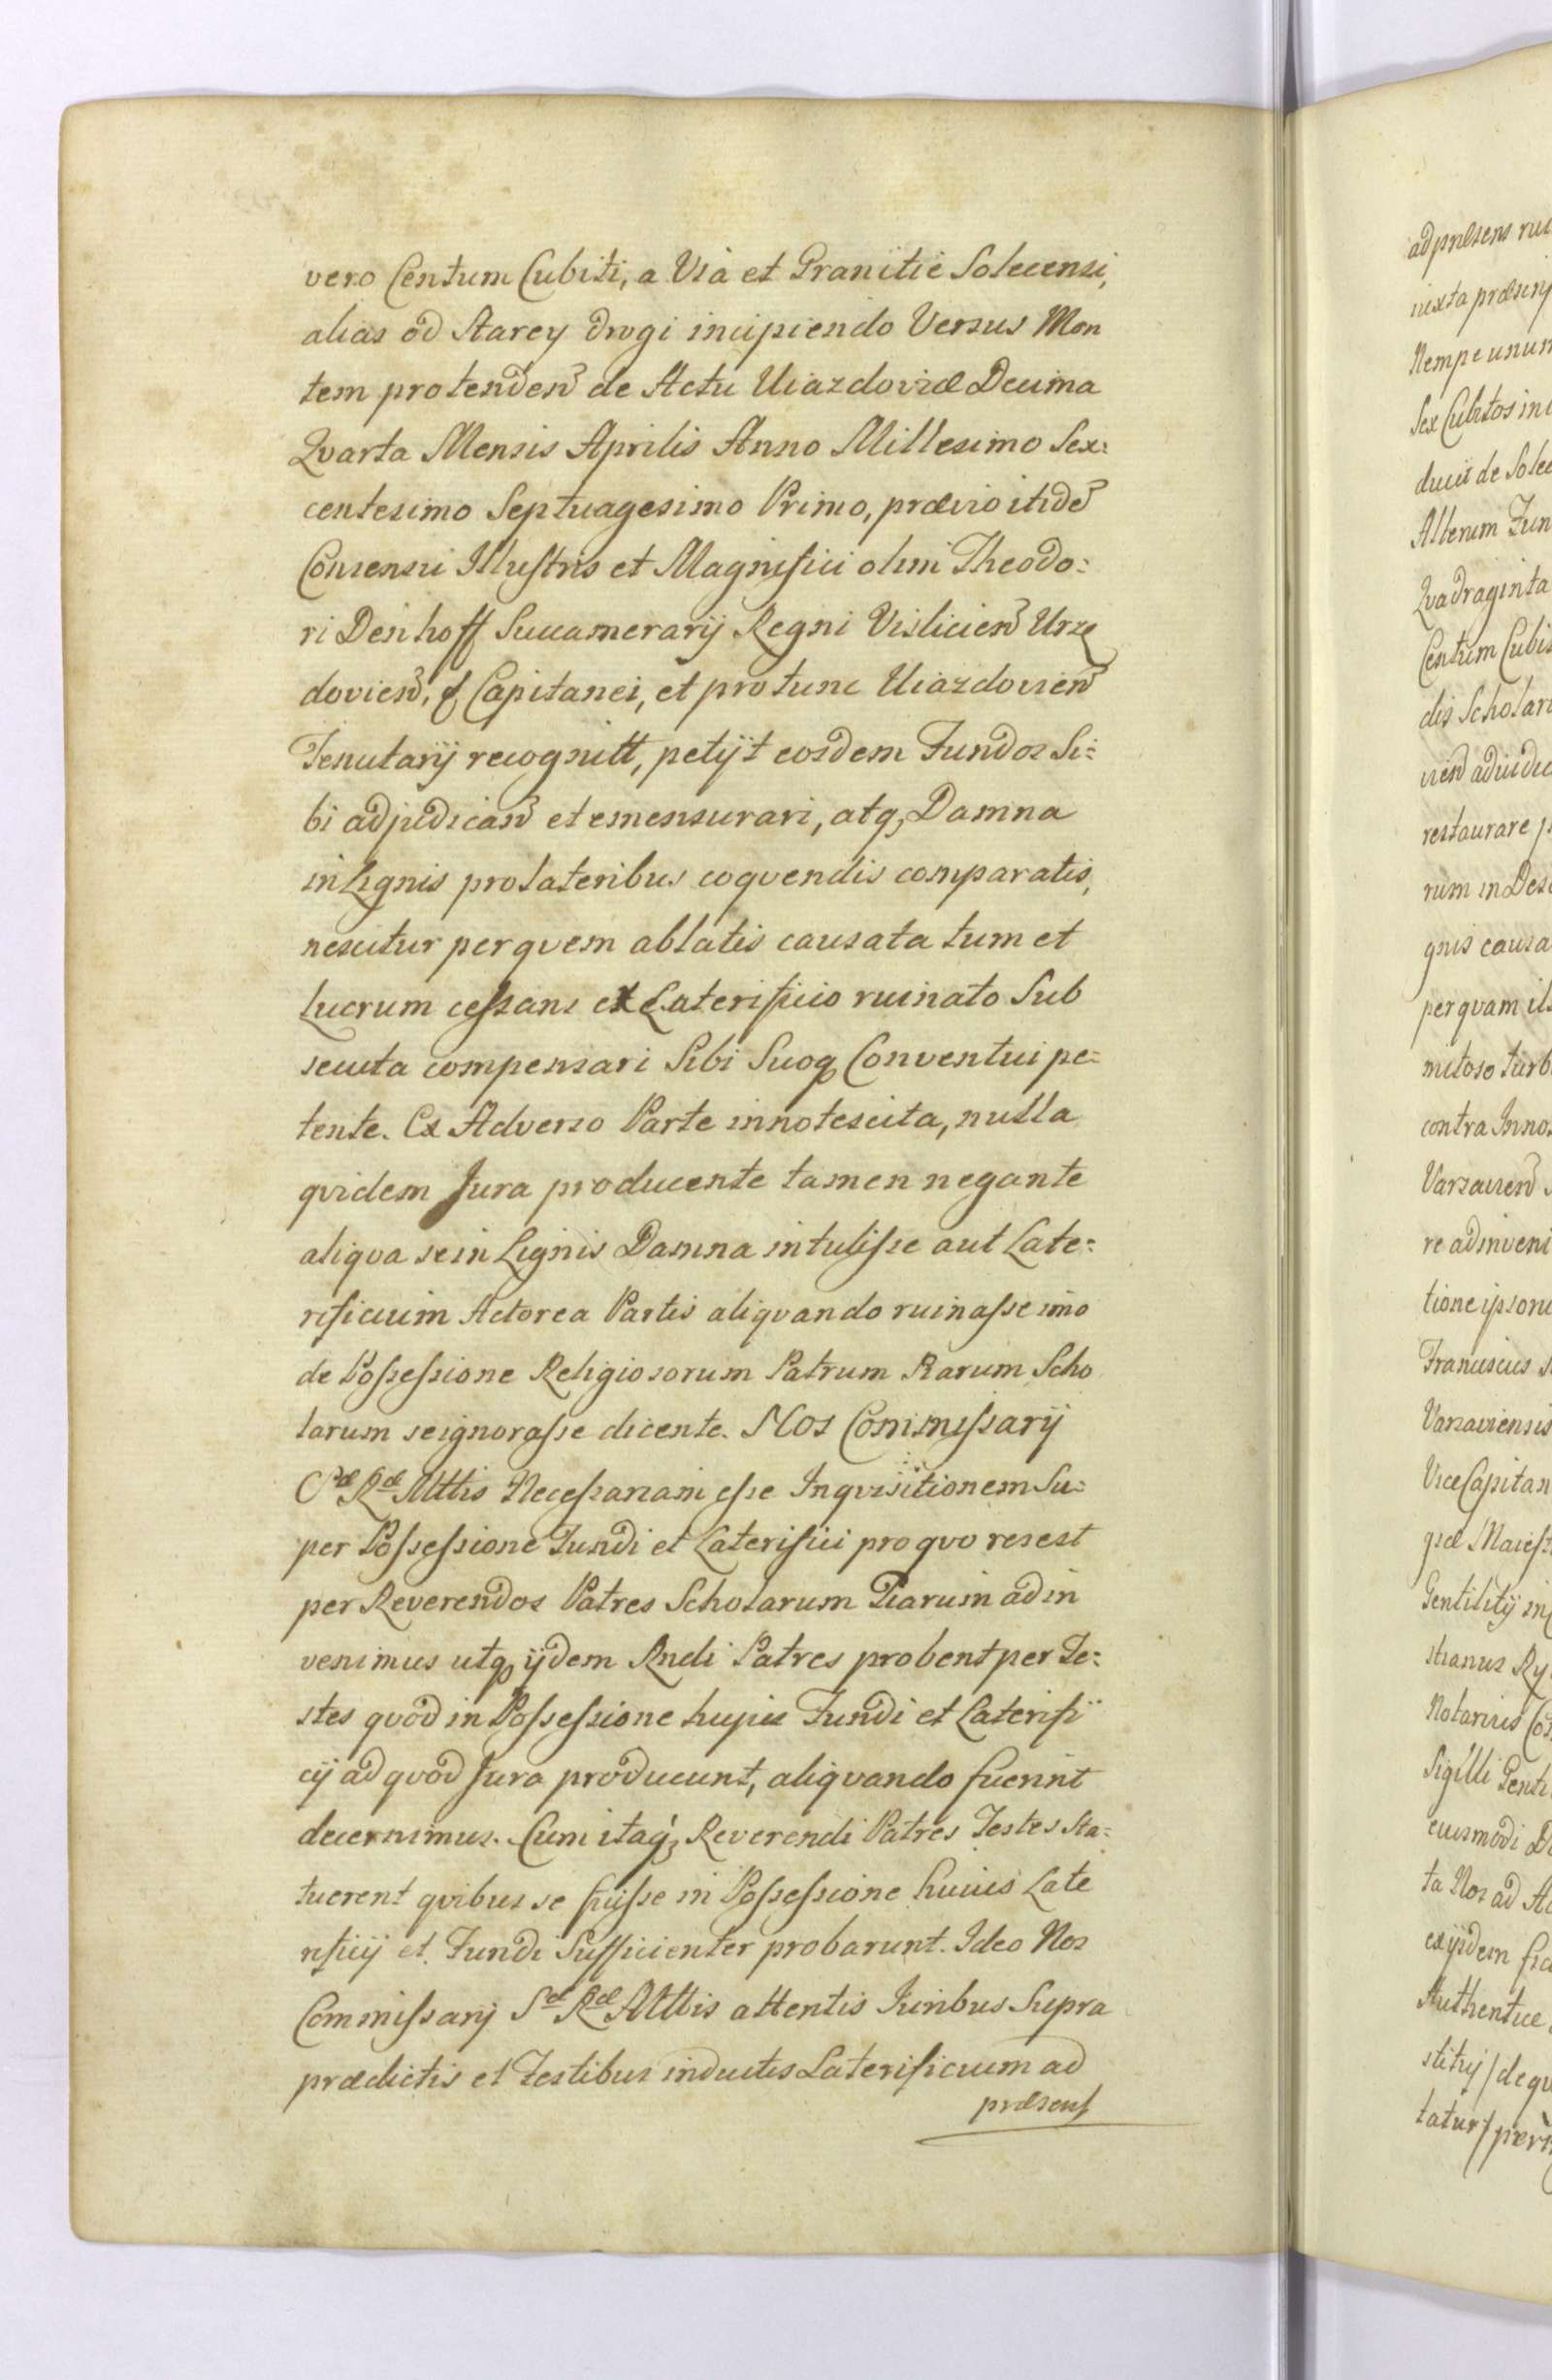 vero Centum Cubiti, a Via et Granitie Solecensi,
alias od Starey drogi incipiendo Versus Mon
tem protenden̄ de Actu Uiazdoviæ Decima
Qvarta Mensis Aprilis Anno Millesimo Sex:
centesimo Septuagesimo Primo, prævio itidē
Consensu Illustris et Magnifici olim Theodo:
ri Denhoff Succamerarij Regni Vislicien̄ Urzę
dovien̄, & Capitanei, et pro tunc Uiazdovien̄
Tenutarij recognitt, petijt eosdem Fundos Si:
bi adjudican̄ et emensurari, atq, Damna
in Lignis pro lateribus coqvendis comparatis,
nescitur per qvem ablatis causata tum et
Lucrum cessans ex Laterificio ruinato Sub
secuta compensari Sibi Suoq Conventui pe=
tente. Ex Adverso Parte innotescita, nulla
qvidem Jura producente tamen negante
aliqva se in Lignis Damna intulisse aut Late:
rificium Actorea Partis aliqvando ruinasse imo
de Possessione Religiosorum Patrum Piarum Scho
larum se ignorasse dicente. Nos Commissarij
Sæ Ræ Mttis Necessariam esse Inqvisitionem Su:
per Possessione Fundi et Laterificii pro qvo res est
per Reverendos Patres Scholarum Piarum ad in
venimus utq ijdem Rndi Patres probent per Te:
stes qvod in Possessione hujus Fundi et Laterifi
cij ad qvod Jura producunt, aliqvando fuerint
decernimus. Cum itaq, Reverendi Patres Testes Sta:
tuerent qvibus se fuisse in Possessione huius Late
rificij et Fundi Sufficienter probarunt. Ideo Nos
Commissarij Sæ Ræ Mttis attentis Juribus Supra
prædictis et Testibus inductis Laterificium ad
præsens
ad præsens
iuxta
Nempe unum
Sex Cubitos
de
Alterum
Qvadraginta
Centum
restaurare
rum in
gnis
per qvam
contra
Varsavien̄
re
Franciscus
Varsaviensis
Vice
Gentilitij
Notarius
Sigilli
eiusmodi
ta Nos ad
Authentice